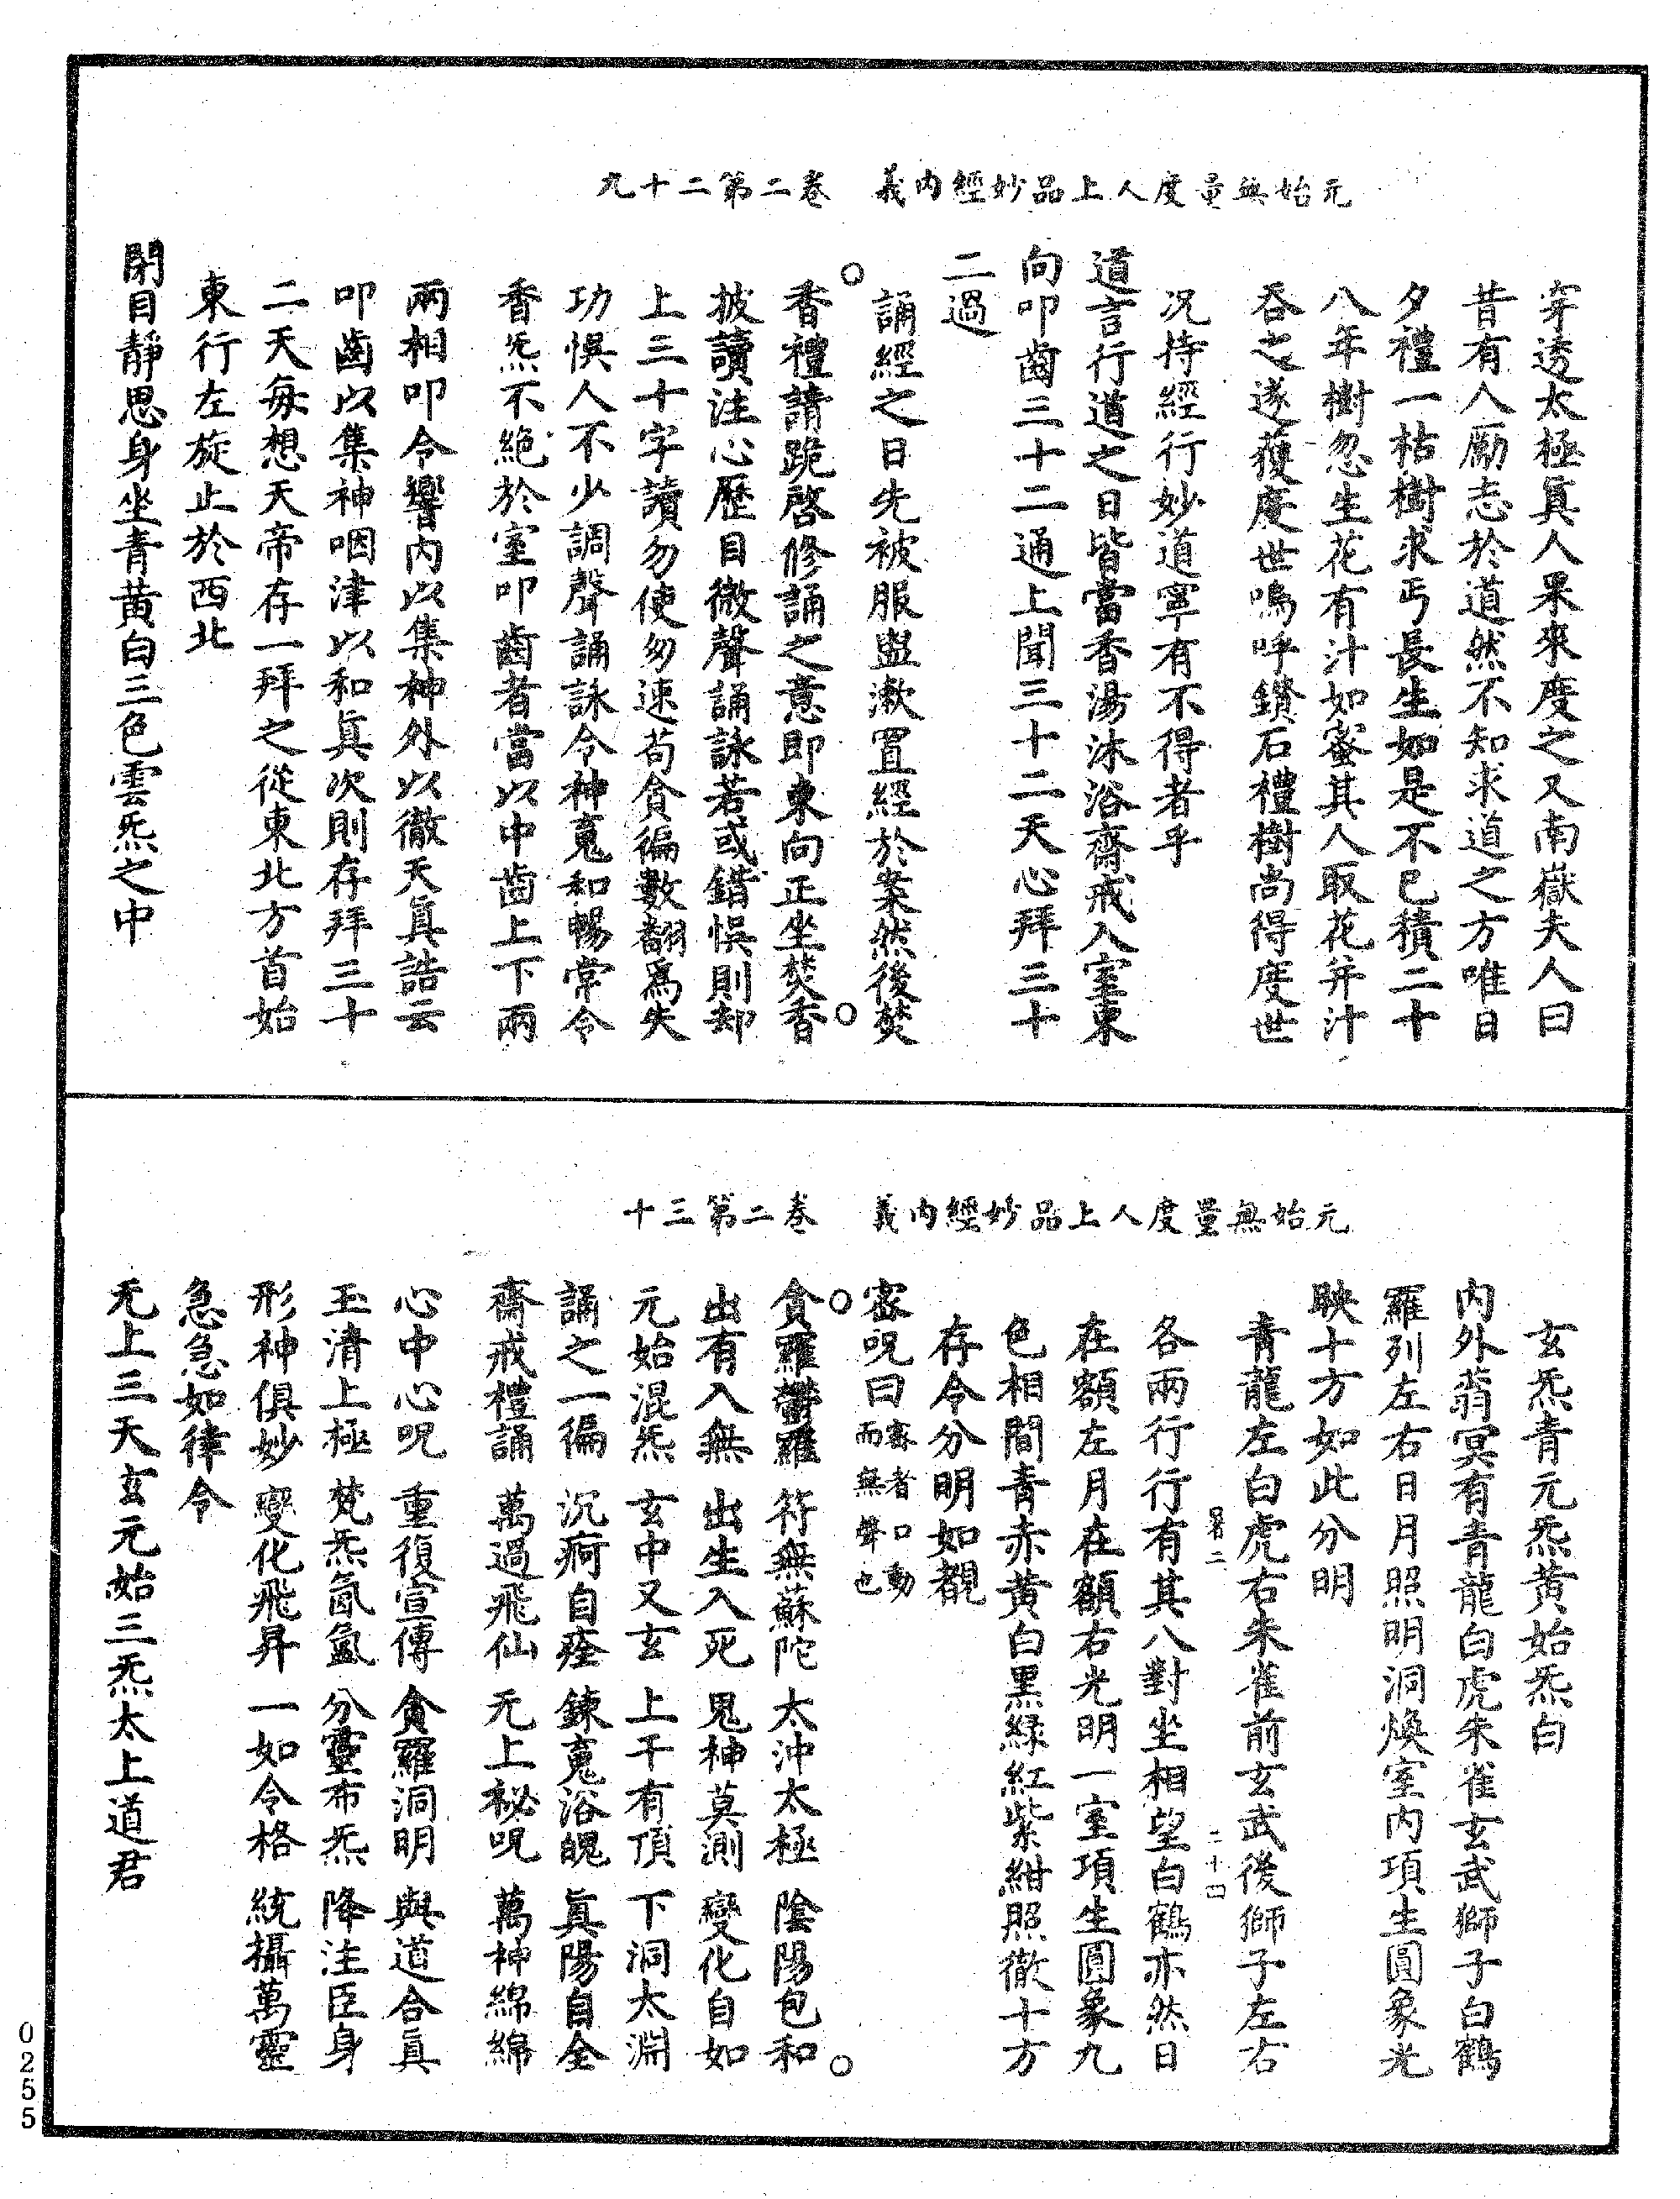 元始無量度人上品妙經內義　卷二第二十九
穿透太極眞人果來度之又南嶽夫人曰
昔有人勵志於道然不知求道之方唯日
夕禮一枯樹求丐長生如是不已積二十
八年樹忽生花有汁如蜜其人取花并汁
吞之遂獲度世嗚呼鑽石禮樹尚得度世
况持經行妙道寧有不得者乎
道言行道之日皆當香湯沐浴齋戒入室東
向叩齒三十二通上聞三十二天心拜三十
二過
誦經之日先被服盥漱置經於案然後焚
香禮請跪啓修誦之意即東向正坐焚香
披讀注心歷目微聲誦詠若或錯悞則却
上三十字讀勿使匆速苟貪徧數翻爲失
功悞人不少調聲誦詠令神䰟和暢常令
香炁不絕於室叩齒者當以中齒上下兩
兩相叩令響內以集神外以徹天眞誥云
叩齒以集神咽津以和眞次則存拜三十
二天每想天帝存一拜之從東北方首始
東行左旋止於西北
閉目靜思身坐青黃白三色雲炁之中
元始無量度人上品妙經內義　卷二第三十
玄炁青元炁黃始炁白
內外蓊冥有青龍白虎朱雀玄武獅子白鶴
羅列左右日月照明洞煥室內項生圓象光
映十方如此分明
青龍左白虎右朱雀前玄武後獅子左右
二　二十四
各兩行行有其八對坐相望白鶴亦然日
在額左月在額右光明一室項生圓象九
色相間青赤黃白黑綠紅紫紺照徹十方
存令分明如覩
密呪曰密者口動而無聲也
貪羅鬱羅　符無蘇陀　太沖太極　陰陽包和
出有入無　出生入死　鬼神莫測　變化自如
元始混炁　玄中又玄　上干有頂　下洞太淵
誦之一徧　沉痾自痊　鍊䰟浴魄　眞陽自全
齋戒禮誦　萬過飛仙　无上祕呪　萬神綿綿
心中心呪　重復宣傳　貪羅洞明　與道合眞
玉清上極　梵炁氤氳　分靈布炁　降注臣身
形神俱妙　變化飛昇　一如令格　統攝萬靈
急急如律令
无上三天玄元始三炁太上道君
0255